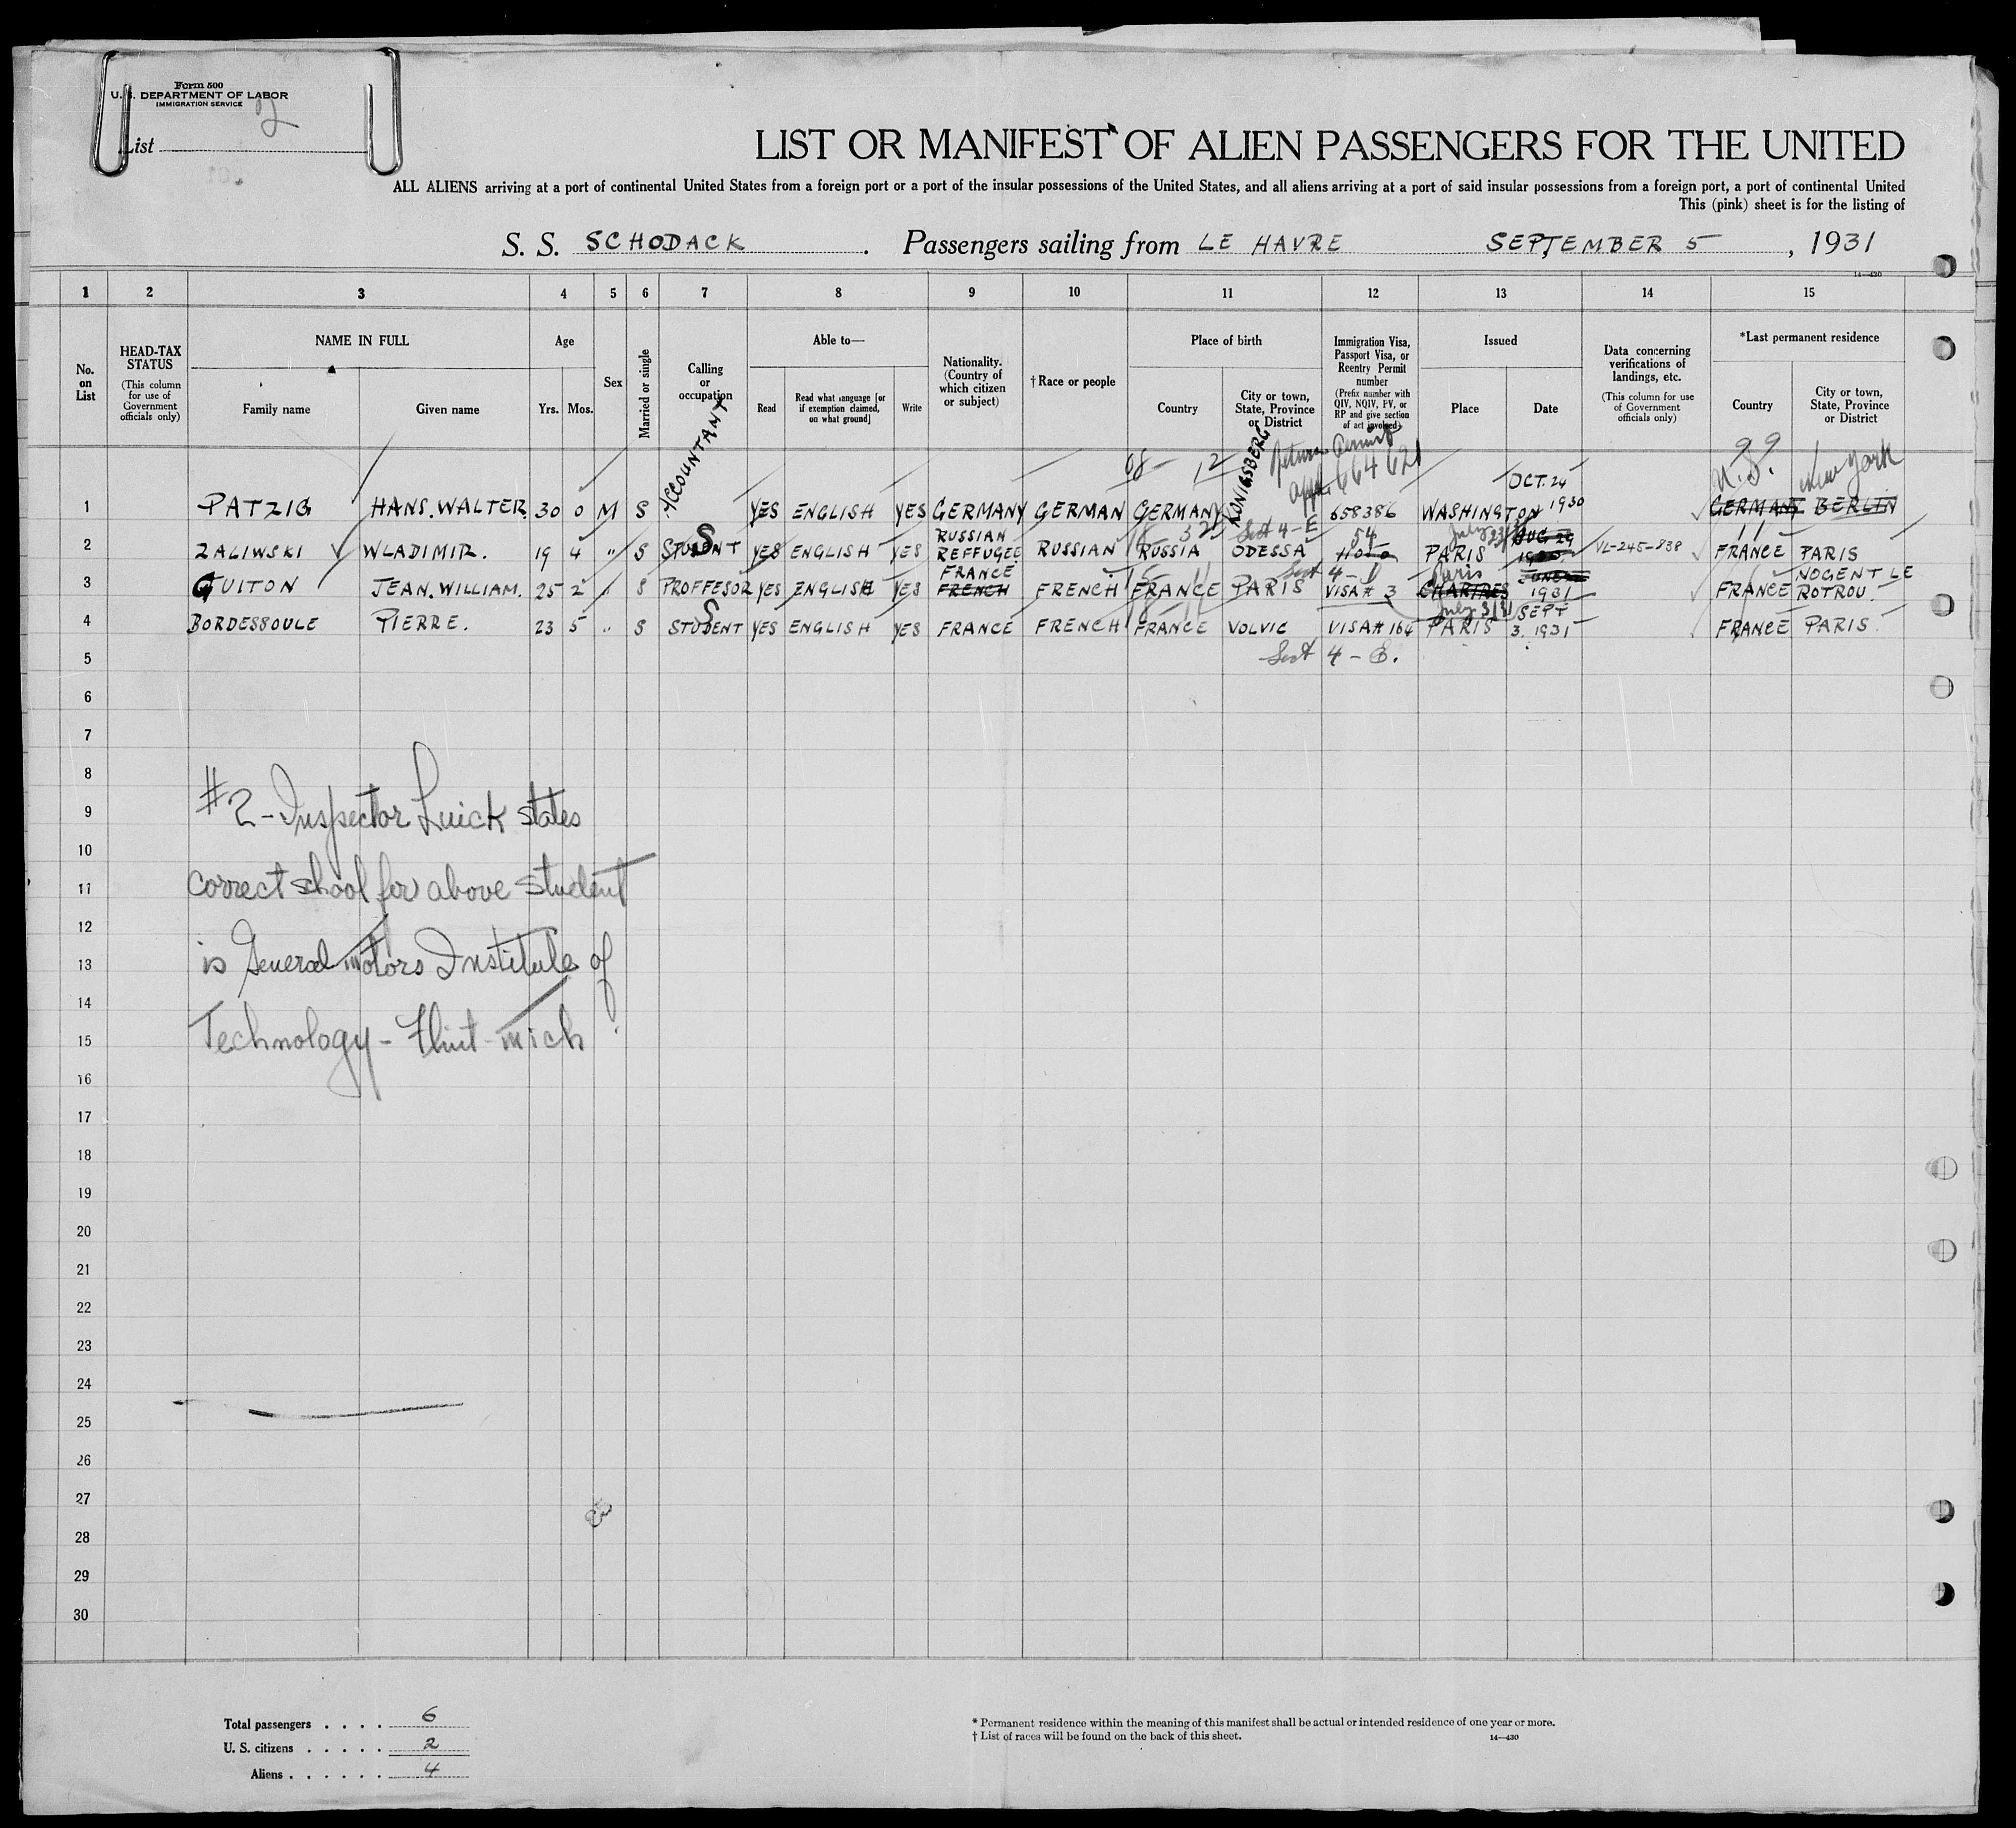 Form 500
U. S. DEPARTMENT OF LABOR
IMMIGRATION SERVICE
List
2
LIST OR MANIFEST OF ALIEN PASSENGERS FOR THE UNITED
ALL ALIENS arriving at a port of continental United States from a foreign port or a port of the insular possessions of the United States, and all aliens arriving at a port of said insular possessions from a foreign port, a port of continental United
This (pink) sheet is for the listing of
S. S. SCHODACK . Passengers sailing from LE HAVRE SEPTEMBER 5 , 1931
14—430
1 2 3 4 5 6 7 8 9 10 11 12 13 14 15
No. on List
HEAD-TAX STATUS (This column for use of Government officials only)
NAME IN FULL
Family name
Given name
Age
Yrs.
Mos.
Sex
Married or single
Calling or occupation
Able to—
Read
Read what language [or if exemption claimed, on what ground]
Write
Nationality. (Country of which citizen or subject)
†Race or people
Place of birth
Country
City or town, State, Province or District
Immigration Visa, Passport Visa, or Reentry Permit number (Prefix number with QIV, NQIV, PV, or RP and give section of act involved)
Issued
Place
Date
Data concerning verifications of landings, etc. (This column for use of Government officials only)
*Last permanent residence
Country
City or town, State, Province or District
08- 12 Return Permit 99
appl. 664621 U.S. New York
1 PATZIG HANS. WALTER. 30 0 M S ACCOUNTANT YES ENGLISH YES GERMANY GERMAN GERMANY KONIGSBERG 658386 WASHINGTON OCT. 24 1930 GERMANY BERLIN
Sect 4-E 54 July 23/31
2 ZALIWSKI WLADIMIR. 19 4 " S STUDENT S YES ENGLISH YES RUSSIAN REFFUGEE RUSSIAN RUSSIA ODESSA PARIS AUG. 29 VL-245-838 FRANCE PARIS
Sect 4- Paris
3 GUITON JEAN. WILLIAM. 25 2 " S PROFFESOR YES ENGLISH YES FRANCE FRENCH FRENCH FRANCE PARIS VISA # 3 CHARTRES 1931 FRANCE NOGENT LE ROTROU.
July 3/31
4 BORDESSOULE PIERRE. 23 5 " S STUDENT S YES ENGLISH YES FRANCE FRENCH FRANCE VOLVIC VISA # 164 PARIS SEPT 3. 1931 FRANCE PARIS.
5 Sect 4-E.
6
7
8
9
10
11
12
13
14
15
16
17
18
19
20
21
22
23
24
25
26
27
28
29
30
#2 - Inspector Luick states
correct school for above student
is General Motors Institute of
Technology - Flint - Mich
Total passengers . . . . 6
U. S. citizens . . . . . 2
Aliens . . . . . . 4
* Permanent residence within the meaning of this manifest shall be actual or intended residence of one year or more.
† List of races will be found on the back of this sheet. 14—430